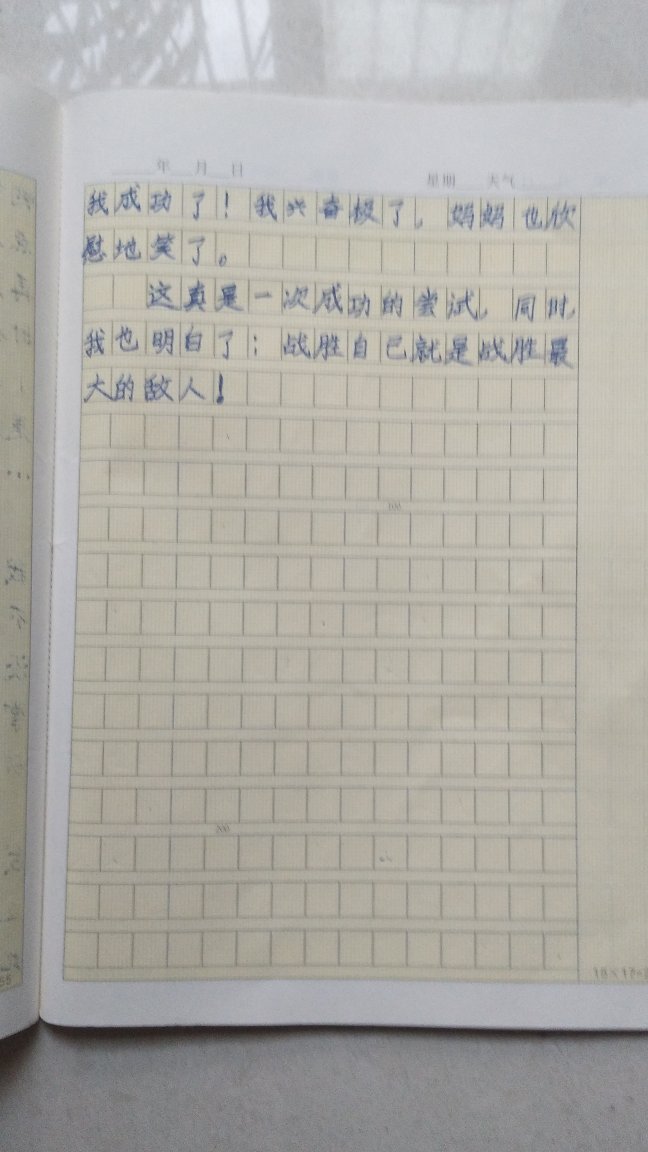 年 月 日 星期 天气
我成功了！我兴奋极了，妈妈也欣
慰地笑了。
这真是一次成功的尝试，同时，
我也明白了：战胜自己就是战胜最
大的敌人！
100
200